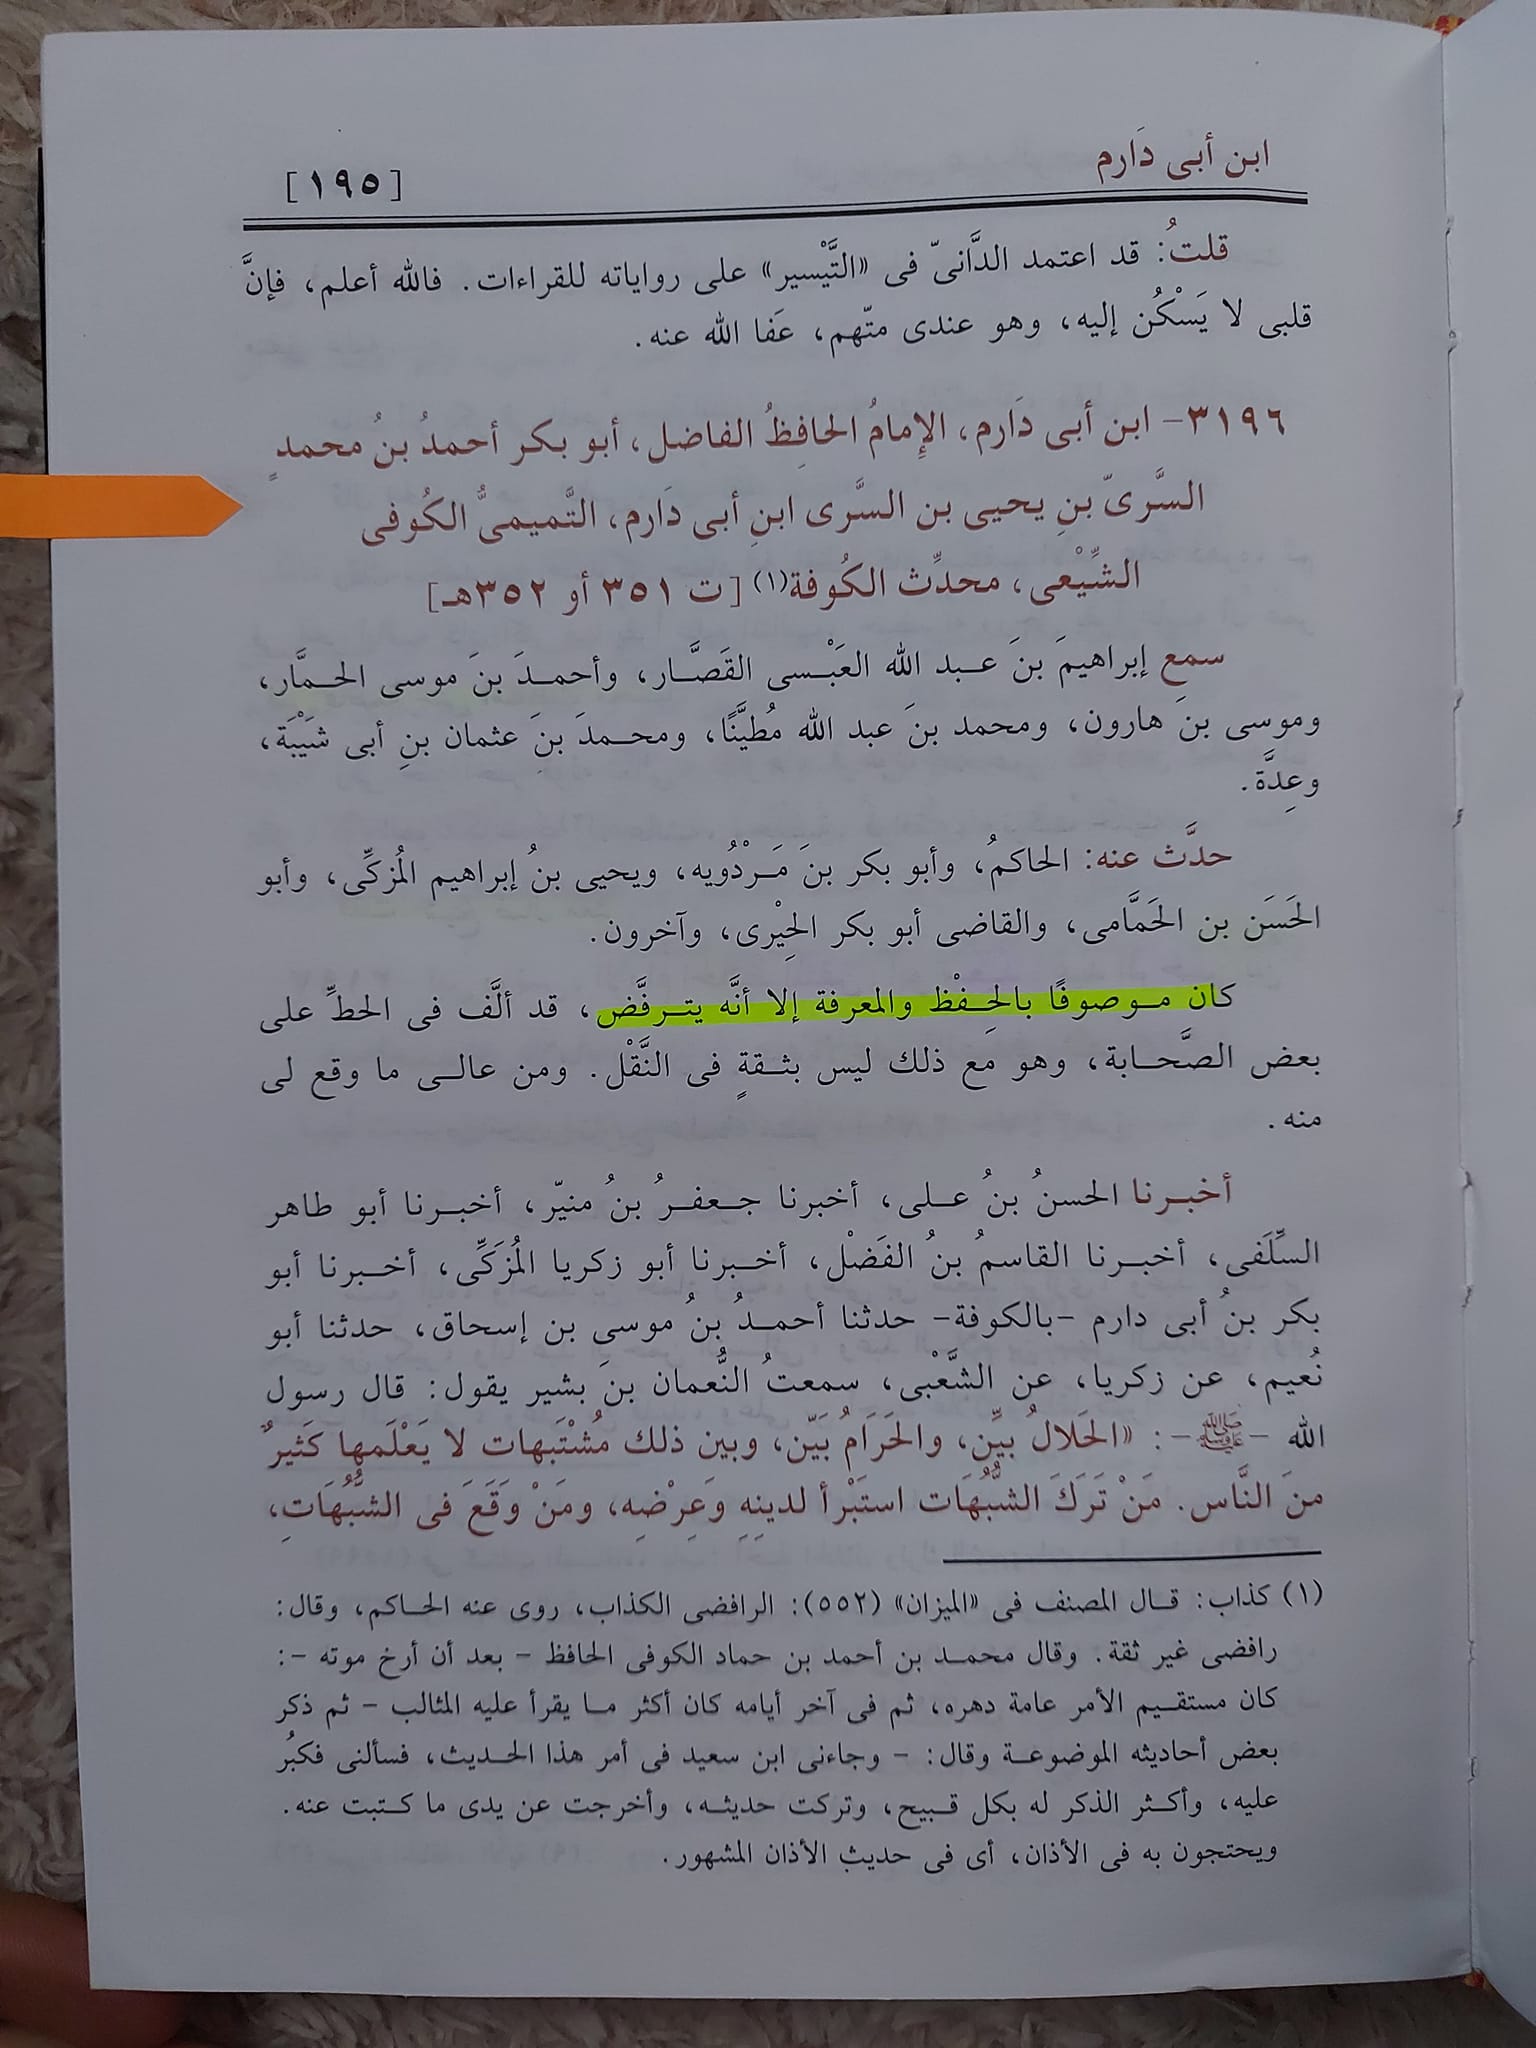 ابن أبى دَارم
[١٩٥]
قلتُ: قد اعتمد الدَّانىّ فى «التَّيْسير» على رواياته للقراءات. فالله أعلم، فإنَّ
قلبى لا يَسْكُن إليه، وهو عندى متّهم، عَفا الله عنه.
٣١٩٦- ابن أبى دَارم، الإِمامُ الحافِظُ الفاضل، أبو بكر أحمدُ بنُ محمدٍ
السَّرىّ بنِ يحيى بن السَّرى ابنِ أبى دَارم، التَّميمىُّ الكُوفى
الشِّيْعى، محدِّث الكُوفة(١) [ت ٣٥١ أو ٣٥٢هـ]
سمع إبراهيمَ بنَ عبد الله العَبْسى القَصَّار، وأحمدَ بنَ موسى الحمَّار،
وموسى بنَ هارون، ومحمد بنَ عبد الله مُطيَّنًا، ومحمدَ بنَ عثمان بنِ أبى شَيْبَة،
وعِدَّة.
حدَّث عنه: الحاكمُ، وأبو بكر بنَ مَرْدُويه، ويحيى بنُ إبراهيم المُزكِّى، وأبو
الحَسَن بن الحَمَّامى، والقاضى أبو بكر الحِيْرى، وآخرون.
كان موصوفًا بالحِفْظ والمعرفة إلا أنَّه يترفَّض، قد ألَّف فى الحطِّ على
بعض الصَّحابة، وهو مع ذلك ليس بثقةٍ فى النَّقْل. ومن عالى ما وقع لى
منه.
أخبرنا الحسنُ بنُ على، أخبرنا جعفرُ بنُ منيّر، أخبرنا أبو طاهر
السِّلَفى، أخبرنا القاسمُ بنُ الفَضْل، أخبرنا أبو زكريا المُزَكِّى، أخبرنا أبو
بكر بنُ أبى دارم -بالكوفة- حدثنا أحمدُ بنُ موسى بن إسحاق، حدثنا أبو
نُعيم، عن زكريا، عن الشَّعْبى، سمعتُ النُّعمان بنَ بشير يقول: قال رسول
الله -ﷺ-: «الحَلالُ بيِّن، والحَرَامُ بَيّن، وبين ذلك مُشْتَبهات لا يَعْلَمها كَثيرٌ
منَ النَّاس. مَنْ تَرَكَ الشبُّهَات استَبْرأ لدينِهِ وَعِرْضِه، ومَنْ وَقَعَ فى الشبُّهَاتِ،
(١) كذاب: قال المصنف فى «الميزان» (٥٥٢): الرافضى الكذاب، روى عنه الحاكم، وقال:
رافضى غير ثقة. وقال محمد بن أحمد بن حماد الكوفى الحافظ - بعد أن أرخ موته -:
كان مستقيم الأمر عامة دهره، ثم فى آخر أيامه كان أكثر ما يقرأ عليه المثالب - ثم ذكر
بعض أحاديثه الموضوعة وقال: - وجاءنى ابن سعيد فى أمر هذا الحديث، فسألنى فكبُر
عليه، وأكثر الذكر له بكل قبيح، وتركت حديثه، وأخرجت عن يدى ما كتبت عنه.
ويحتجون به فى الأذان، أى فى حديث الأذان المشهور.